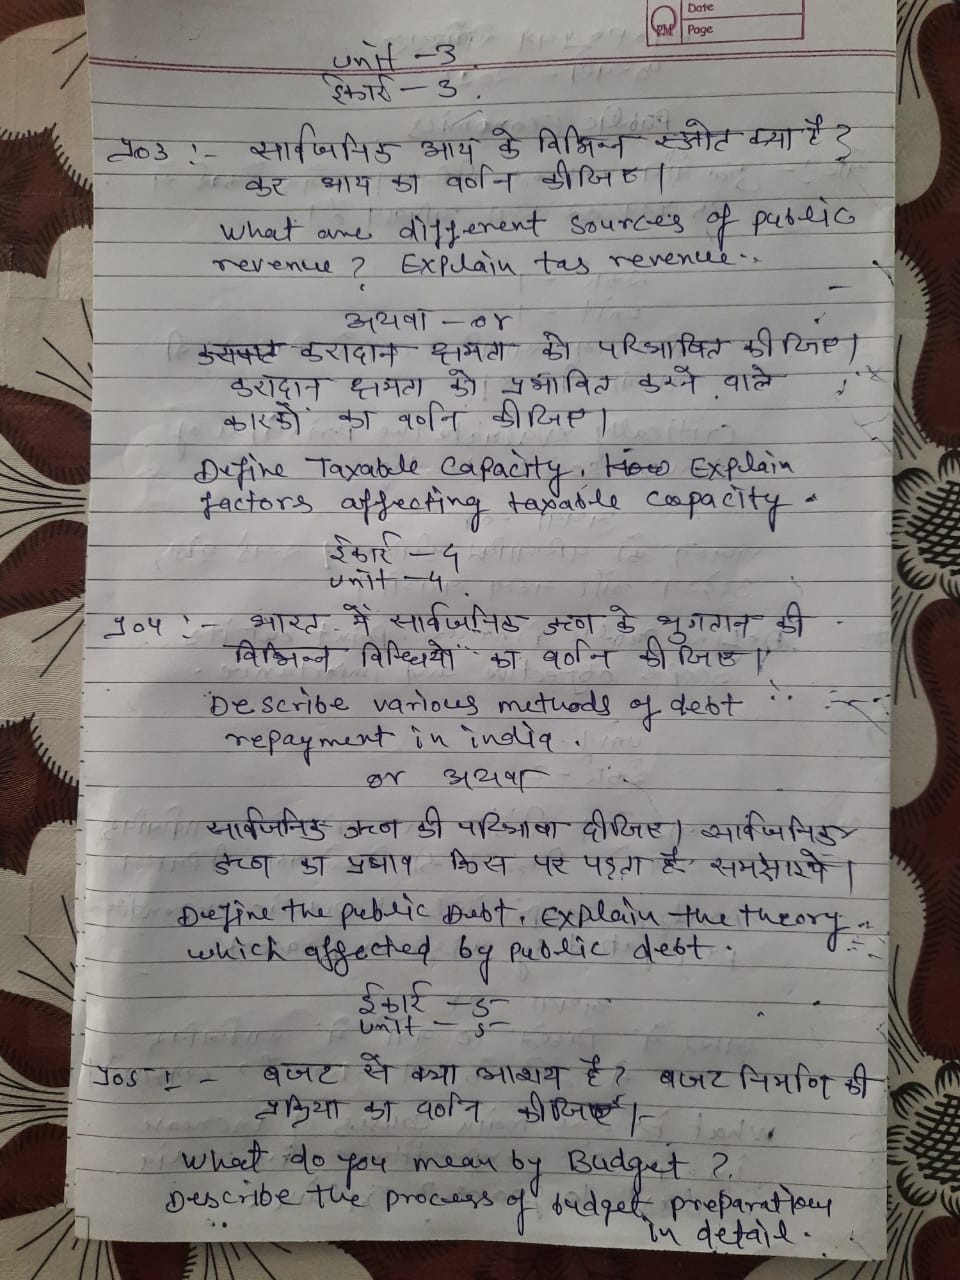 Date
Page
unit - 3.
ईकाई - 3.
प्र03 :- सार्वजनिक आय के विभिन्न स्त्रोत क्या है?
कर आय का वर्णन कीजिए।
What are different sources of public
revenue? Explain tas revenue..
अथवा - or
करादान क्षमता को परिभाषित कीजिए।
करादान क्षमता को प्रभावित करने वाले
कारकों का वर्णन कीजिए।
Define Taxable Capacity. How Explain
factors affecting taxable capacity.
ईकाई - 4
unit - 4.
प्र04 :- भारत में सार्वजनिक ऋण के भुगतान की
विभिन्न विधियों का वर्णन कीजिए।
Describe various methods of debt
repayment in india.
or अथवा
सार्वजनिक ऋण की परिभाषा दीजिए। सार्वजनिक
ऋण का प्रभाव किस पर पड़ता है समझाइये।
Define the public Debt. Explain the theory
which affected by public debt.
ईकाई - 5
unit - 5
प्र05 :- बजट से क्या आशय है? बजट निर्माण की
प्रक्रिया का वर्णन कीजिए।
What do you mean by Budget?
Describe the process of budget preparation
in detail.